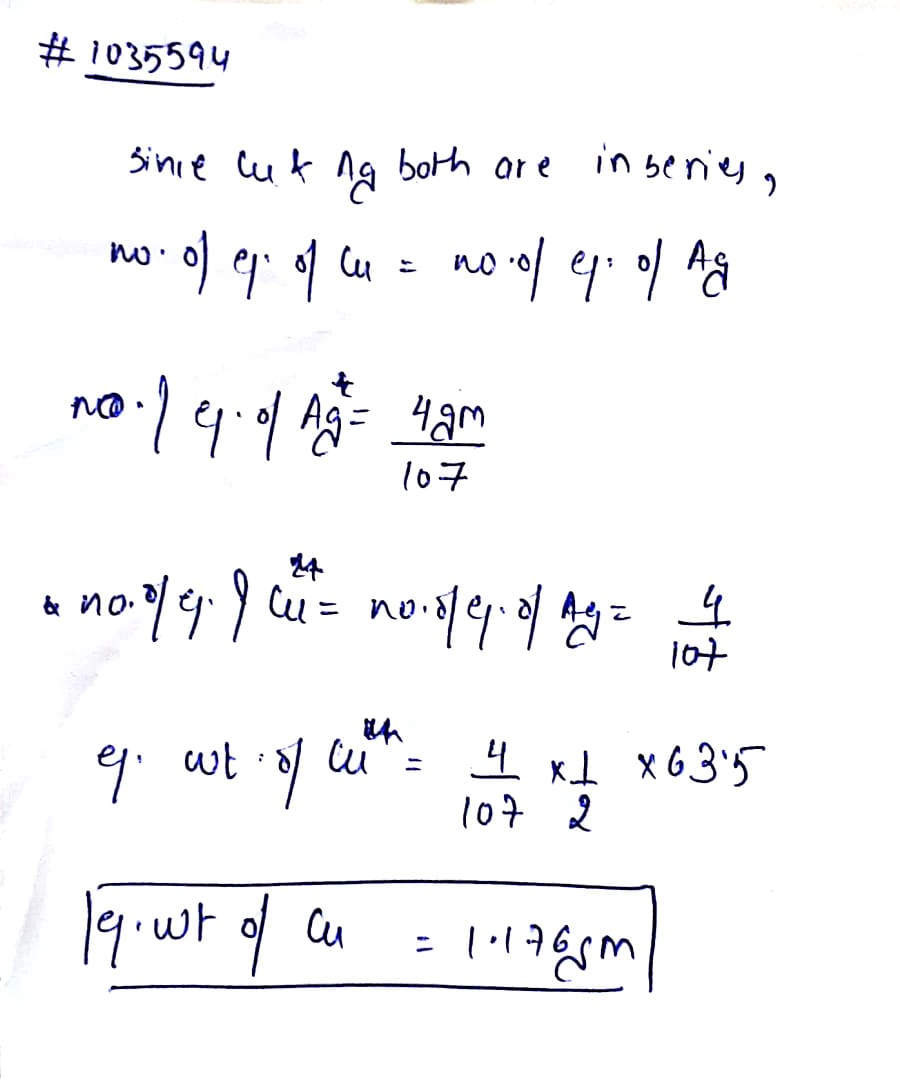 # 1035594
Since Cu & Ag both are in series,
no. of eq. of Cu = no. of eq. of Ag
no. of eq. of Ag+ = 4gm
107
& no. of eq. of Cu2+ = no. of eq. of Ag = 4
107
eq. wt. of Cu = 4 x 1 x 63.5
107 2
eq. wt of Cu = 1.176gm